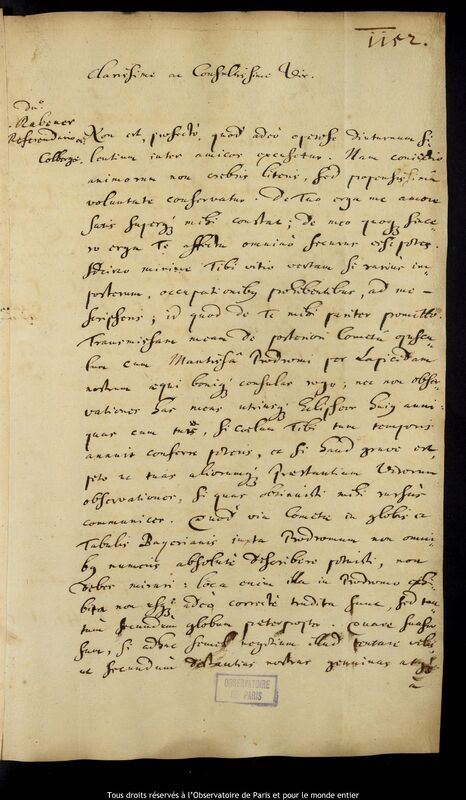 1152.
Clarissime ac Consultissime Vir.
Dno
Rabener
Referendario
Colbergæ.
Non est, profectò, quod adeò operose diuturnum si-
lentium inter amicos excusetur. Nam
animorum non crebris literis, sed propensissimâ
voluntate conservatur. De Tuo erga me amore
satis superq; mihi constat; de meo quoq; since-
ro erga Te affectu omninò securus esse potes.
Idcirco minimè Tibi vitio vertam si rariùs im-
posterum, occupationibus prohibentibus, ad me
scripseris; id quod de Te mihi pariter promitto.
Transmissum meum de posteriori Cometa opuscu-
lum cum Mantissâ Prodromi per Lapicidam
nostrum æqui boniq; consulas rogo; nec non obser-
vationes has meas utriusq; Eclipseos huius anni:
quas cum tuis, si cælum Tibi tum temporis
annuit conferre poteris, et si haud grave est
peto ut tuas aliorumq; Præstantium Virorum
observationes, si quas obtinuisti mihi rursùs
communices. Quod viam Cometæ in globis et
Tabulis Bayerianis iuxta Prodromum non omni-
bus numeris absolutè describere potuisti, non
debes mirari: loca enim illa in Prodromo
bita non usq; adeò correctè tradita sunt, sed tan-
tùm secundùm globum Quare
si adhuc semel negotium illud tentare velis
ut secundùm distantias nostras genuinas
OBSERVATOIRE
DE PARIS
Tous droits réservés à l'Observatoire de Paris et pour le monde entier